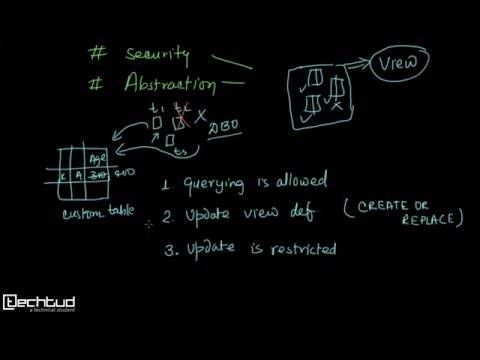 # Security
# Abstraction
View
t1 t2 X
DBO
t3
Age
1 A 310 400
custom table
1. Querying is allowed
2. Update view def (CREATE OR REPLACE)
3. Update is restricted
techtud
a technical student